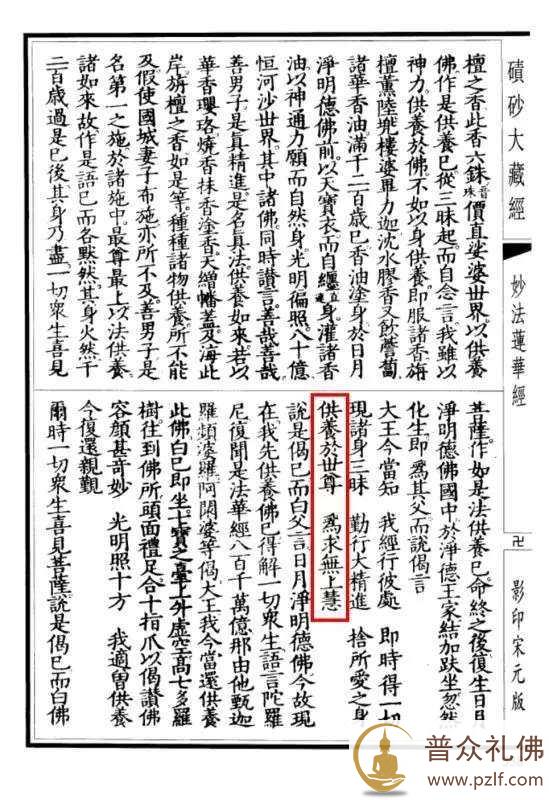 磧砂大藏經
妙法蓮華經
卍
影印宋元版
檀之香此香六銖音殊價直娑婆世界以供養
佛作是供養已從三昧起而自念言我雖以
神力供養於佛不如以身供養即服諸香栴
檀薰陸兜樓婆畢力迦沈水膠香又飲薝蔔
諸華香油滿千二百歲已香油塗身於日月
淨明德佛前以天寶衣而自纏直連身灌諸香
油以神通力願而自然身光明徧照八十億
恒河沙世界其中諸佛同時讚言善哉善哉
善男子是真精進是名真法供養如來若以
華香瓔珞燒香抹香塗香天繒幡蓋及海此
岸旃檀之香如是等種種諸物供養所不能
及假使國城妻子布施亦所不及善男子是
名第一之施於諸施中最尊最上以法供養
諸如來故作是語已而各默然其身火然千
二百歲過是已後其身乃盡一切衆生喜見
菩薩作如是法供養已命終之後復生日月
淨明德佛國中於淨德王家結加趺坐忽然
化生即爲其父而說偈言
大王今當知 我經行彼處 即時得一切
現諸身三昧 勤行大精進 捨所愛之身
供養於世尊 爲求無上慧
說是偈已而白父言日月淨明德佛今故現
在我先供養佛已得解一切衆生語言陀羅
尼復聞是法華經八百千萬億那由他甄迦
羅頻婆羅阿閦婆等偈大王我今當還供養
此佛白已即坐七寶之臺上升虛空高七多羅
樹往到佛所頭面禮足合十指爪以偈讚佛
容顏甚奇妙 光明照十方 我適曾供養
今復還親覲
爾時一切衆生喜見菩薩說是偈已而白佛
普众礼佛
www.pzlf.com